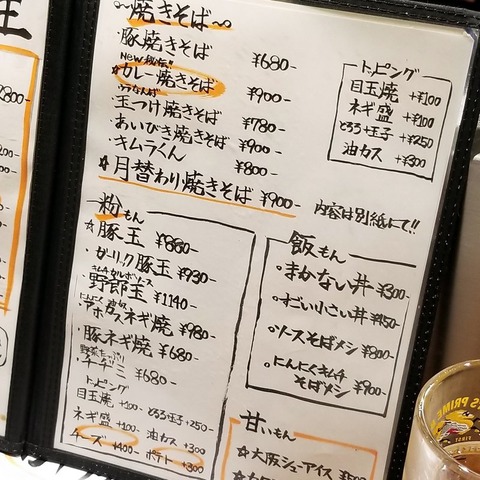 焼きそば
豚焼きそば ¥680-
NEW
☆カレー焼きそば ¥900-
玉つけ焼きそば ¥780-
あいびき焼きそば ¥900-
キムラくん ¥800-
☆月替わり焼きそば ¥900-
内容は別紙にて!!
トッピング
目玉焼 +¥100
ネギ盛 +¥100
とろろ+玉子 +¥250
油カス +¥300
粉もん
☆豚玉 ¥880-
・ガーリック豚玉 ¥930-
野郎玉 ¥1140-
ネギ焼 ¥980-
・豚ネギ焼 ¥680-
野菜たっぷり
チヂミ ¥680-
トッピング
目玉焼 +100- とろろ+玉子 +250-
ネギ盛 +100- 油カス +300
チーズ +400- ポテト +300
飯もん
・まかない丼 ¥300-
・すごい小さい丼 ¥450-
・ソースそばメシ ¥800-
・にんにくキムチ
そばメシ ¥900-
甘いもん
☆大阪シューアイス